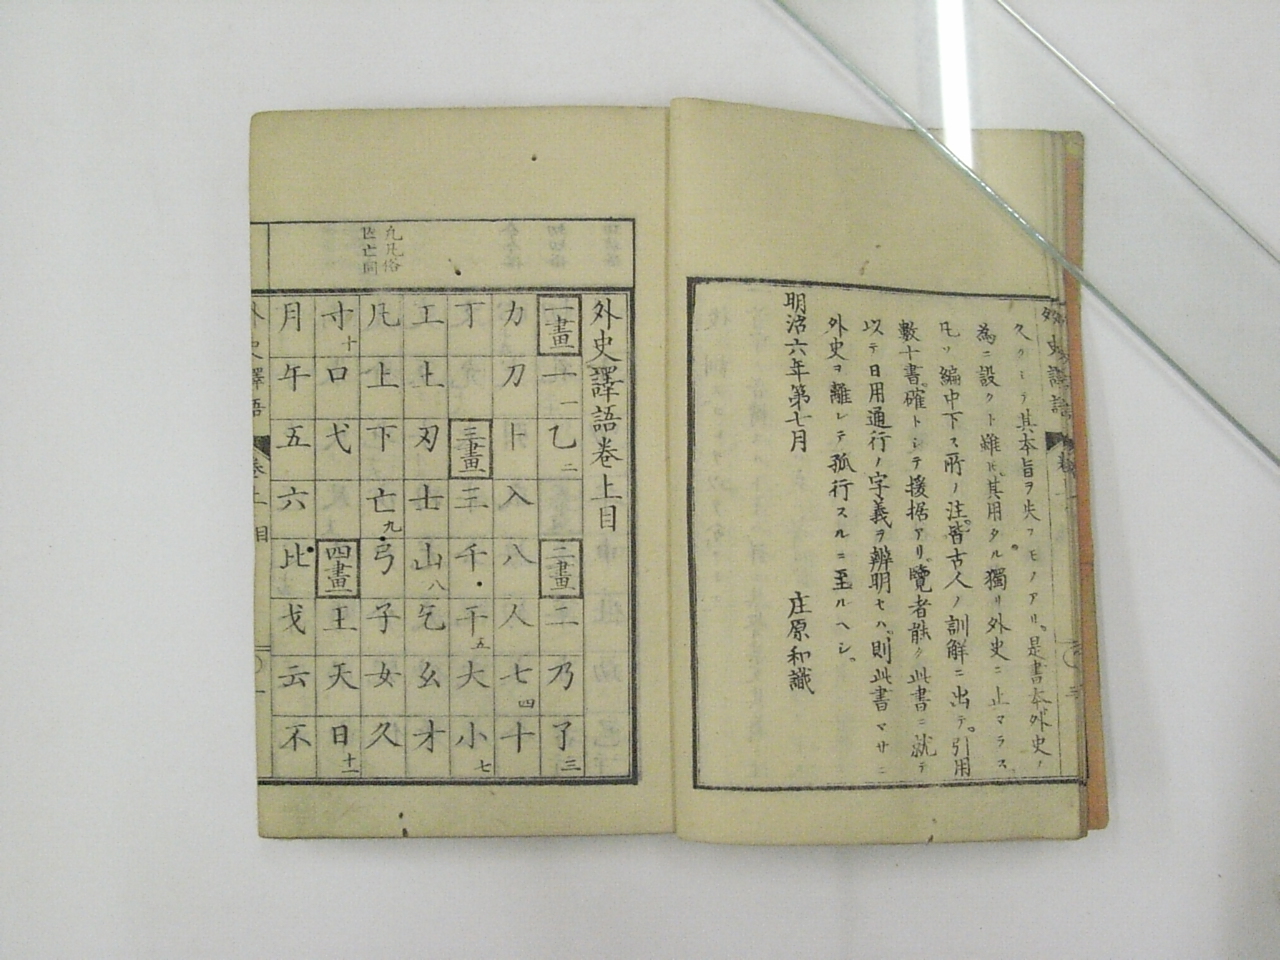 久クシテ其本旨ヲ失フモノアリ。是書本外史ノ
為ニ設クト雖𪜈。其用タル獨リ外史ニ止マラス
凡ソ編中下ス所ノ注。皆古人ノ訓解ニ出テ。引用
數十書。確トシテ援据アリ。覽者能ク此書ニ就テ
以テ日用通行ノ字義ヲ辨明セハ。則此書マサニ
外史ヲ離レテ孤行スルニ至ルヘシ。
明治六年第七月 庄原和識
外史譯語
外史譯語卷上目
一畫 一一 乙二 二畫 二 乃 了三
力 刀 卜 入 八 人 七四 十
丁 三畫 三 千 干五 大 小七
工 土 刃 士 山八 乞 幺 才
凡 上 下 亡九 弓 子 女 久
寸十 口 弋 四畫 王 天 日十一
月 午 五 六 比 戈 云 不
外史譯語 卷上目